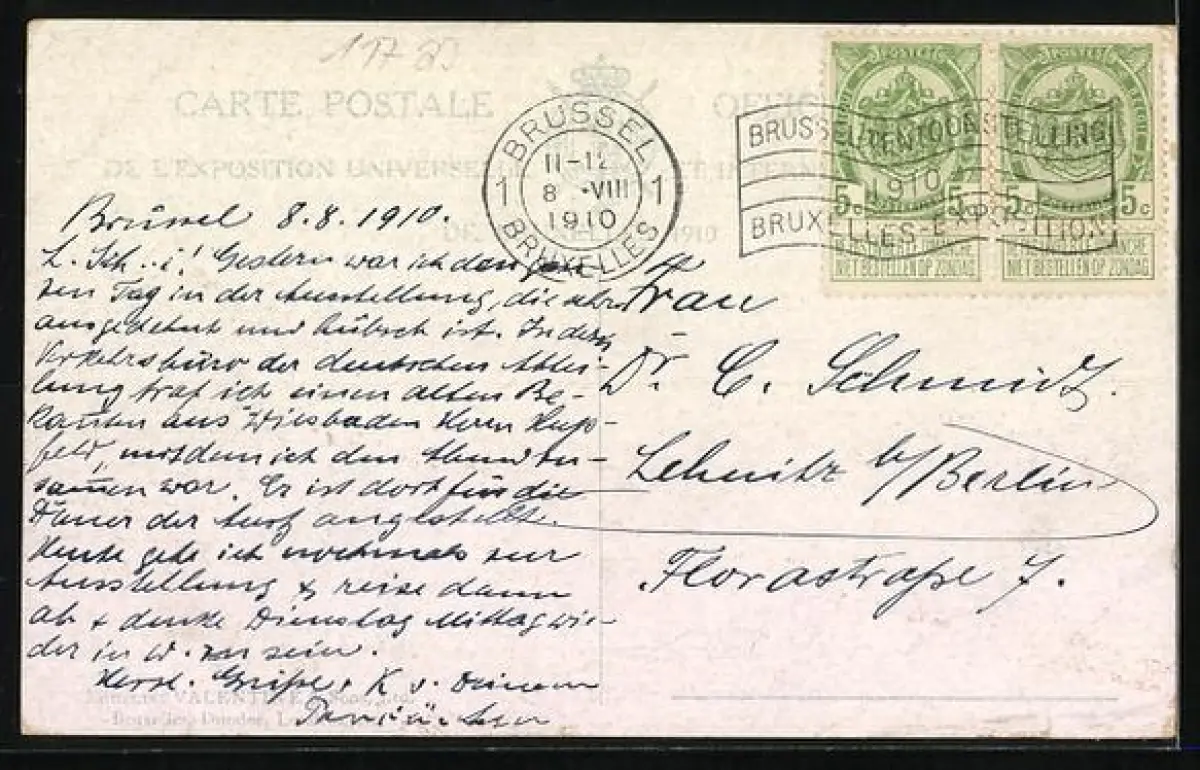 1783
CARTE POSTALE OFFIC
DE L'EXPOSITION UNIVERSELLE ET INTERN
DE 1910
BRÜSSEL
11-12
1 8 ·VIII 1
1910
BRUXELLES
BRUSSEL-TENTOONSTELLING
1910
BRUXELLES-EXPOSITION
POSTES
5c 5c
POSTERIJEN
NE PAS LIVRER LE DIMANCHE
NIET BESTELLEN OP ZONDAG
POSTES
5c 5c
POSTERIJEN
NE PAS LIVRER LE DIMANCHE
NIET BESTELLEN OP ZONDAG
Brüssel 8.8.1910.
L. Sch..i! Gestern war ich den gan
zen Tag in der Ausstellung, die sehr
ausgedehnt und hübsch ist. In dem
Verkehrsbüro der deutschen Abtei-
lung traf ich einen alten Be-
kannten aus Wiesbaden Herrn Hups-
feld, mit dem ich den Abend zu-
sammen war. Es ist dort für die
Dauer der Ausst angestellt.
Heute gehe ich nochmals zur
Ausstellung & reise dann
ab & denke Dienstag Mittag wie-
der in W. zu sein.
Herzl. Grüße & K v. Deinem
Frau
Dr. C. Schmidt.
Lehnitz b/Berlin
Florastraße 7.
VALENTINE
Bruxelles, Dundee, L